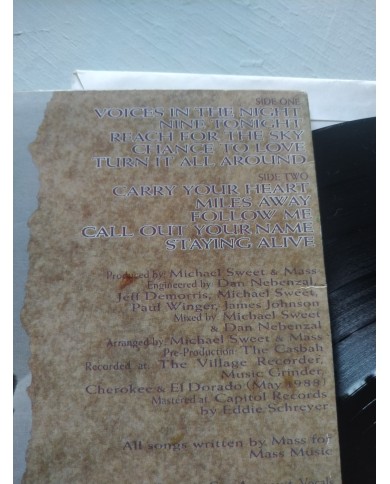 SIDE ONE
VOICES IN THE NIGHT
NINE TONIGHT
REACH FOR THE SKY
CHANCE TO LOVE
TURN IT ALL AROUND
SIDE TWO
CARRY YOUR HEART
MILES AWAY
FOLLOW ME
CALL OUT YOUR NAME
STAYING ALIVE
Produced by: Michael Sweet & Mass
Engineered by: Dan Nebenzal,
Jeff Demorris, Michael Sweet,
Paul Winger, James Johnson
Mixed by: Michael Sweet
& Dan Nebenzal
Arranged by: Michael Sweet & Mass
Pre-Production: The Casbah
Recorded at: The Village Recorder,
Music Grinder,
Cherokee & El Dorado (May 1988)
Mastered at: Capitol Records
by Eddie Schreyer
All songs written by Mass for
Mass Music
Vocals